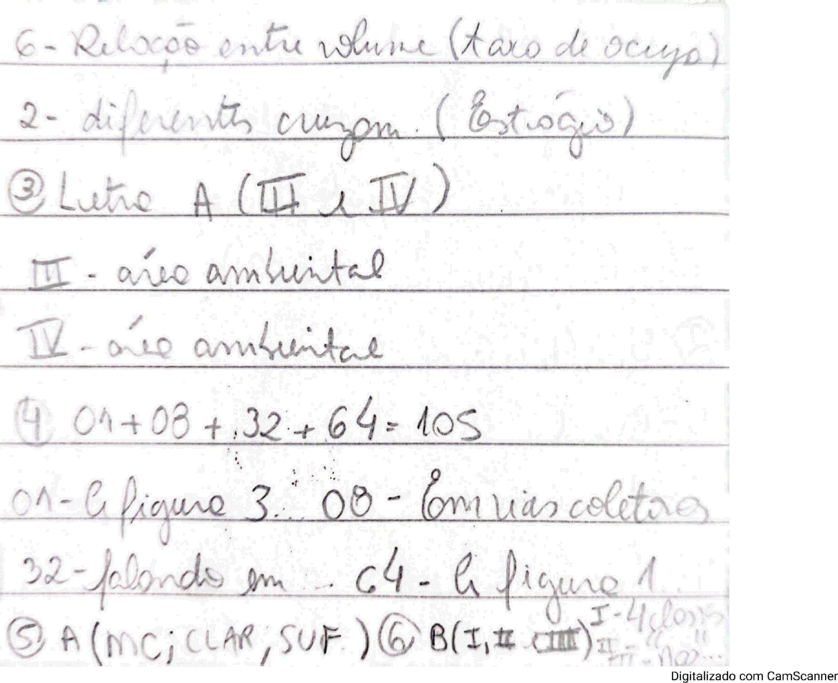 6- Relação entre volume (taxa de ocupa)
2- diferentes cruzam. (Estrógio)
③ Letra A (III e IV)
III - área ambiental
IV - área ambiental
④ 01+08+32+64=105
01- A figura 3... 08 - Em vias coletoras
32- falando em ... 64- A figura 1
⑤ A (MC; CLAR, SUF.) ⑥ B (I, II e III) I - 4 classes
II - " "
III - Nas...
Digitalizado com CamScanner